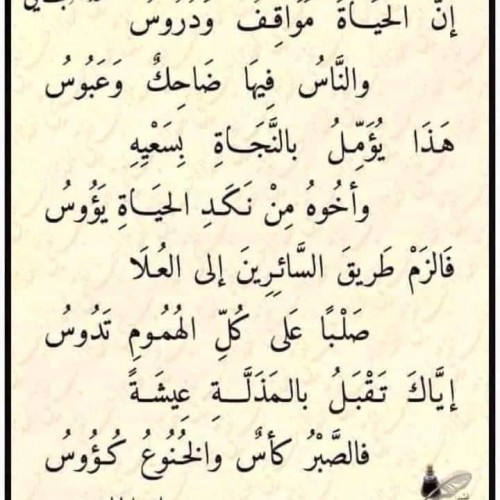 إنَّ الحَيَـاةَ مَوَاقِـفٌ وَدُرُوسُ
والنَّاسُ فِيهَا ضَاحِكٌ وَعَبُوسُ
هَذَا يُؤَمِّلُ بالنَّجَـاةِ بِسَعْيِهِ
وأخُوهُ مِنْ نَكَـدِ الحيَـاةِ يَؤُوسُ
فَالزَمْ طَرِيقَ السَّائِرِينَ إلى العُلَا
صَلْبًا عَلى كُلِّ الهُمُومِ تَدُوسُ
إيَّاكَ تَقْبَلُ بالمَذَلَّـةِ عِيشَـةً
فالصَّبْرُ كأسٌ والخُنُوعُ كُـؤُوسُ